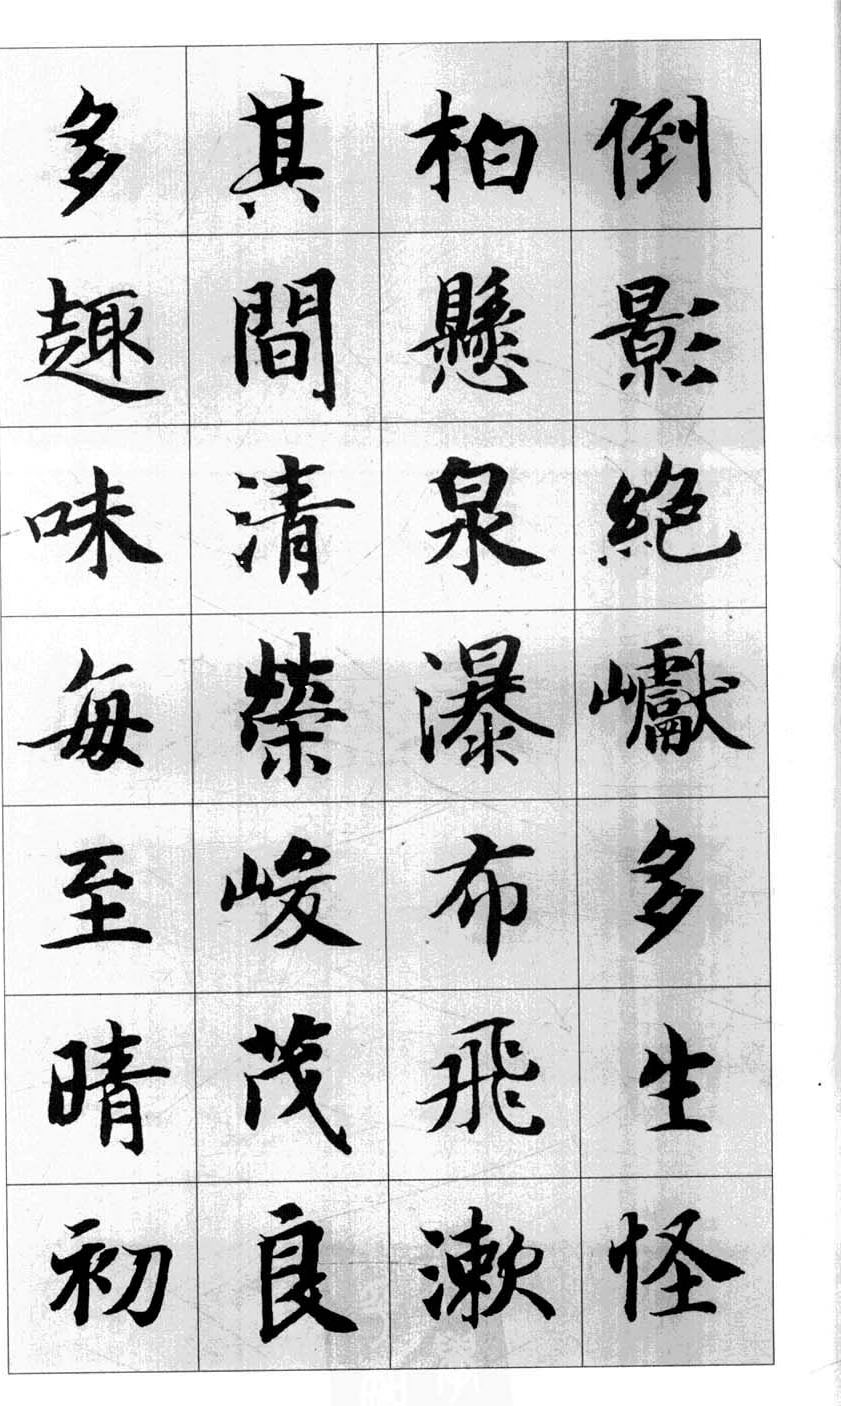 倒影絕巘多生怪
柏懸泉瀑布飛漱
其間清榮峻茂良
多趣味每至晴初